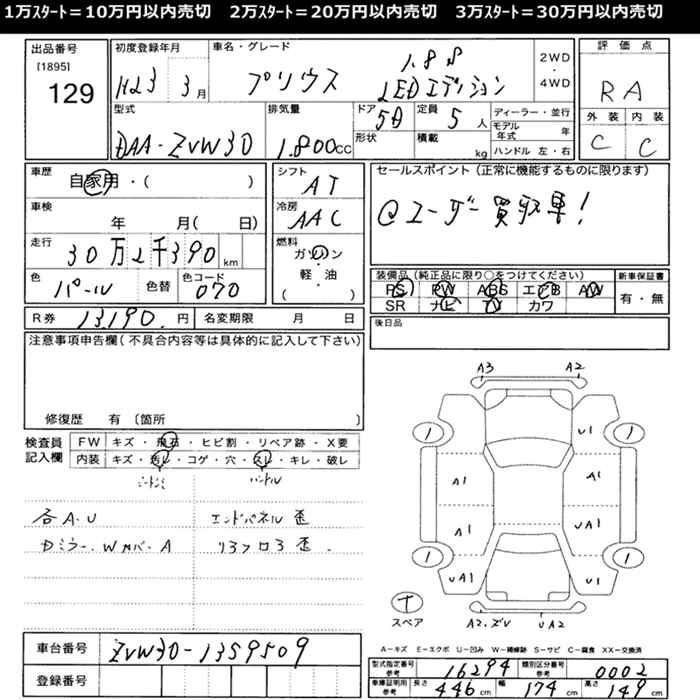 1万ｽﾀｰﾄ＝10万円以内売切　2万ｽﾀｰﾄ＝20万円以内売切　3万ｽﾀｰﾄ＝30万円以内売切
出品番号 [1895] 129
初度登録年月 H23 3月
車名・グレード プリウス 1.8S LEDエディション
2WD・4WD
評価点 RA
外装 C 内装 C
型式 DAA-ZVW30
排気量 1.800cc
ドア 5D 形状
定員 5人 積載 kg
ディーラー・並行
モデル年式 年
ハンドル 左・右
車歴 自家用・( )
シフト AT
セールスポイント（正常に機能するものに限ります）
@ユーザー買取車!
車検 年 月( 日)
冷房 AAC
走行 30万2千390km
燃料 ガソリン・軽・油 ( )
色 パール 色替 色コード 070
装備品（純正品に限り○をつけてください） 新車保証書
PS PW ABS エアB AW 有・無
SR ナビ TV カワ
R券 13190.円 名変期限 月 日
後日品
注意事項申告欄（不具合内容等は具体的に記入して下さい）
修復歴 有 〔箇所 〕
検査員記入欄
FW キズ・飛石・ヒビ割・リペア跡・X要
内装 キズ・汚レ・コゲ・穴・スレ・キレ・破レ
シートシミ ハンドル
各A.U エンドパネル歪
Dミラー.Wカバー.A リアフロア歪.
A3 A2
1 U1 1
A1 A1
A1 UA1
1 UA1 U1 1
T スペア A2.ズレ UA2
A－キズ E－エクボ U－凹み W－補修跡 S－サビ C－腐食 XX－交換済
車台番号 ZVW30-1359509
登録番号
型式指定番号参考 16294 類別区分番号参考 0002
車庫証明用参考 長さ 446cm 幅 174cm 高さ 149cm